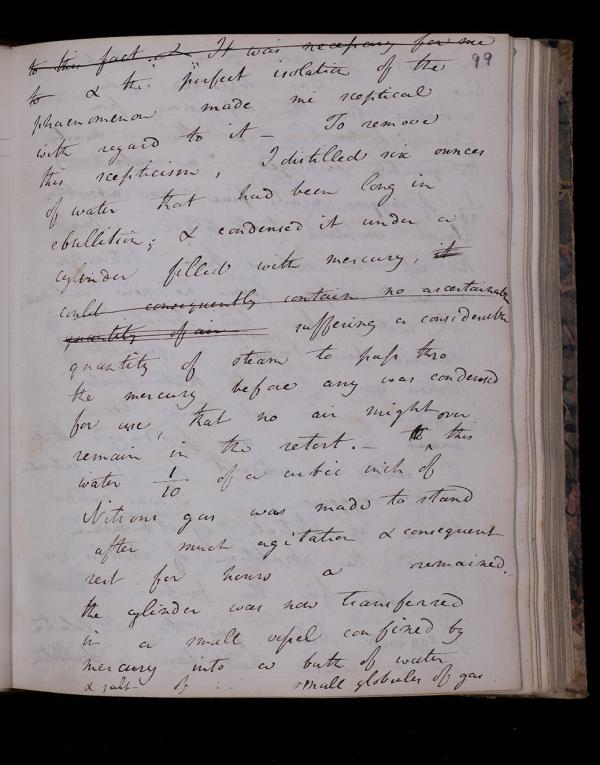 to this fact. & It was necessary for me
99
to & the perfect isolation of the
phaenomenon made me sceptical
with regard to it – To remove
this scepticism, I distilled six ounces
of water that had been long in
ebullition; & condensed it under a
cylinder filled with mercury, it
could consequently contain no ascertainable
quantity of air suffering a considerable
quantity of steam to pass thro
the mercury before any was condensed
for use, that no air might
remain in the retort. – over this
water 1/10 of a cubic inch of
Nitrous gas was made to stand
after much agitation & consequent
rest for hours a remained.
the cylinder was now transferred
in a small vessel confined by
mercury into a bath of water
& salt of small globules of gas